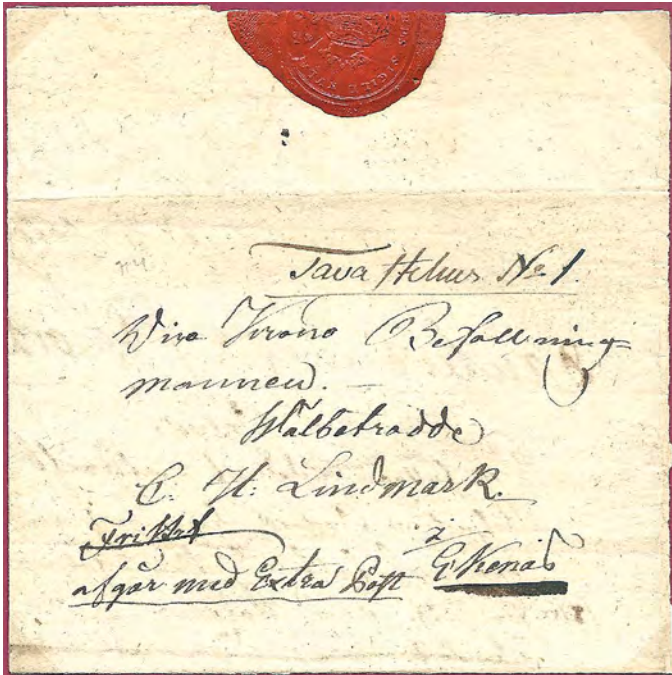 Tavastehus No 1.
Wice Krono Befallnings=
mannen.
Wälbetrodde
C. H: Lindmark.
Fribref
i
afgår med Extra Post Ekenäs